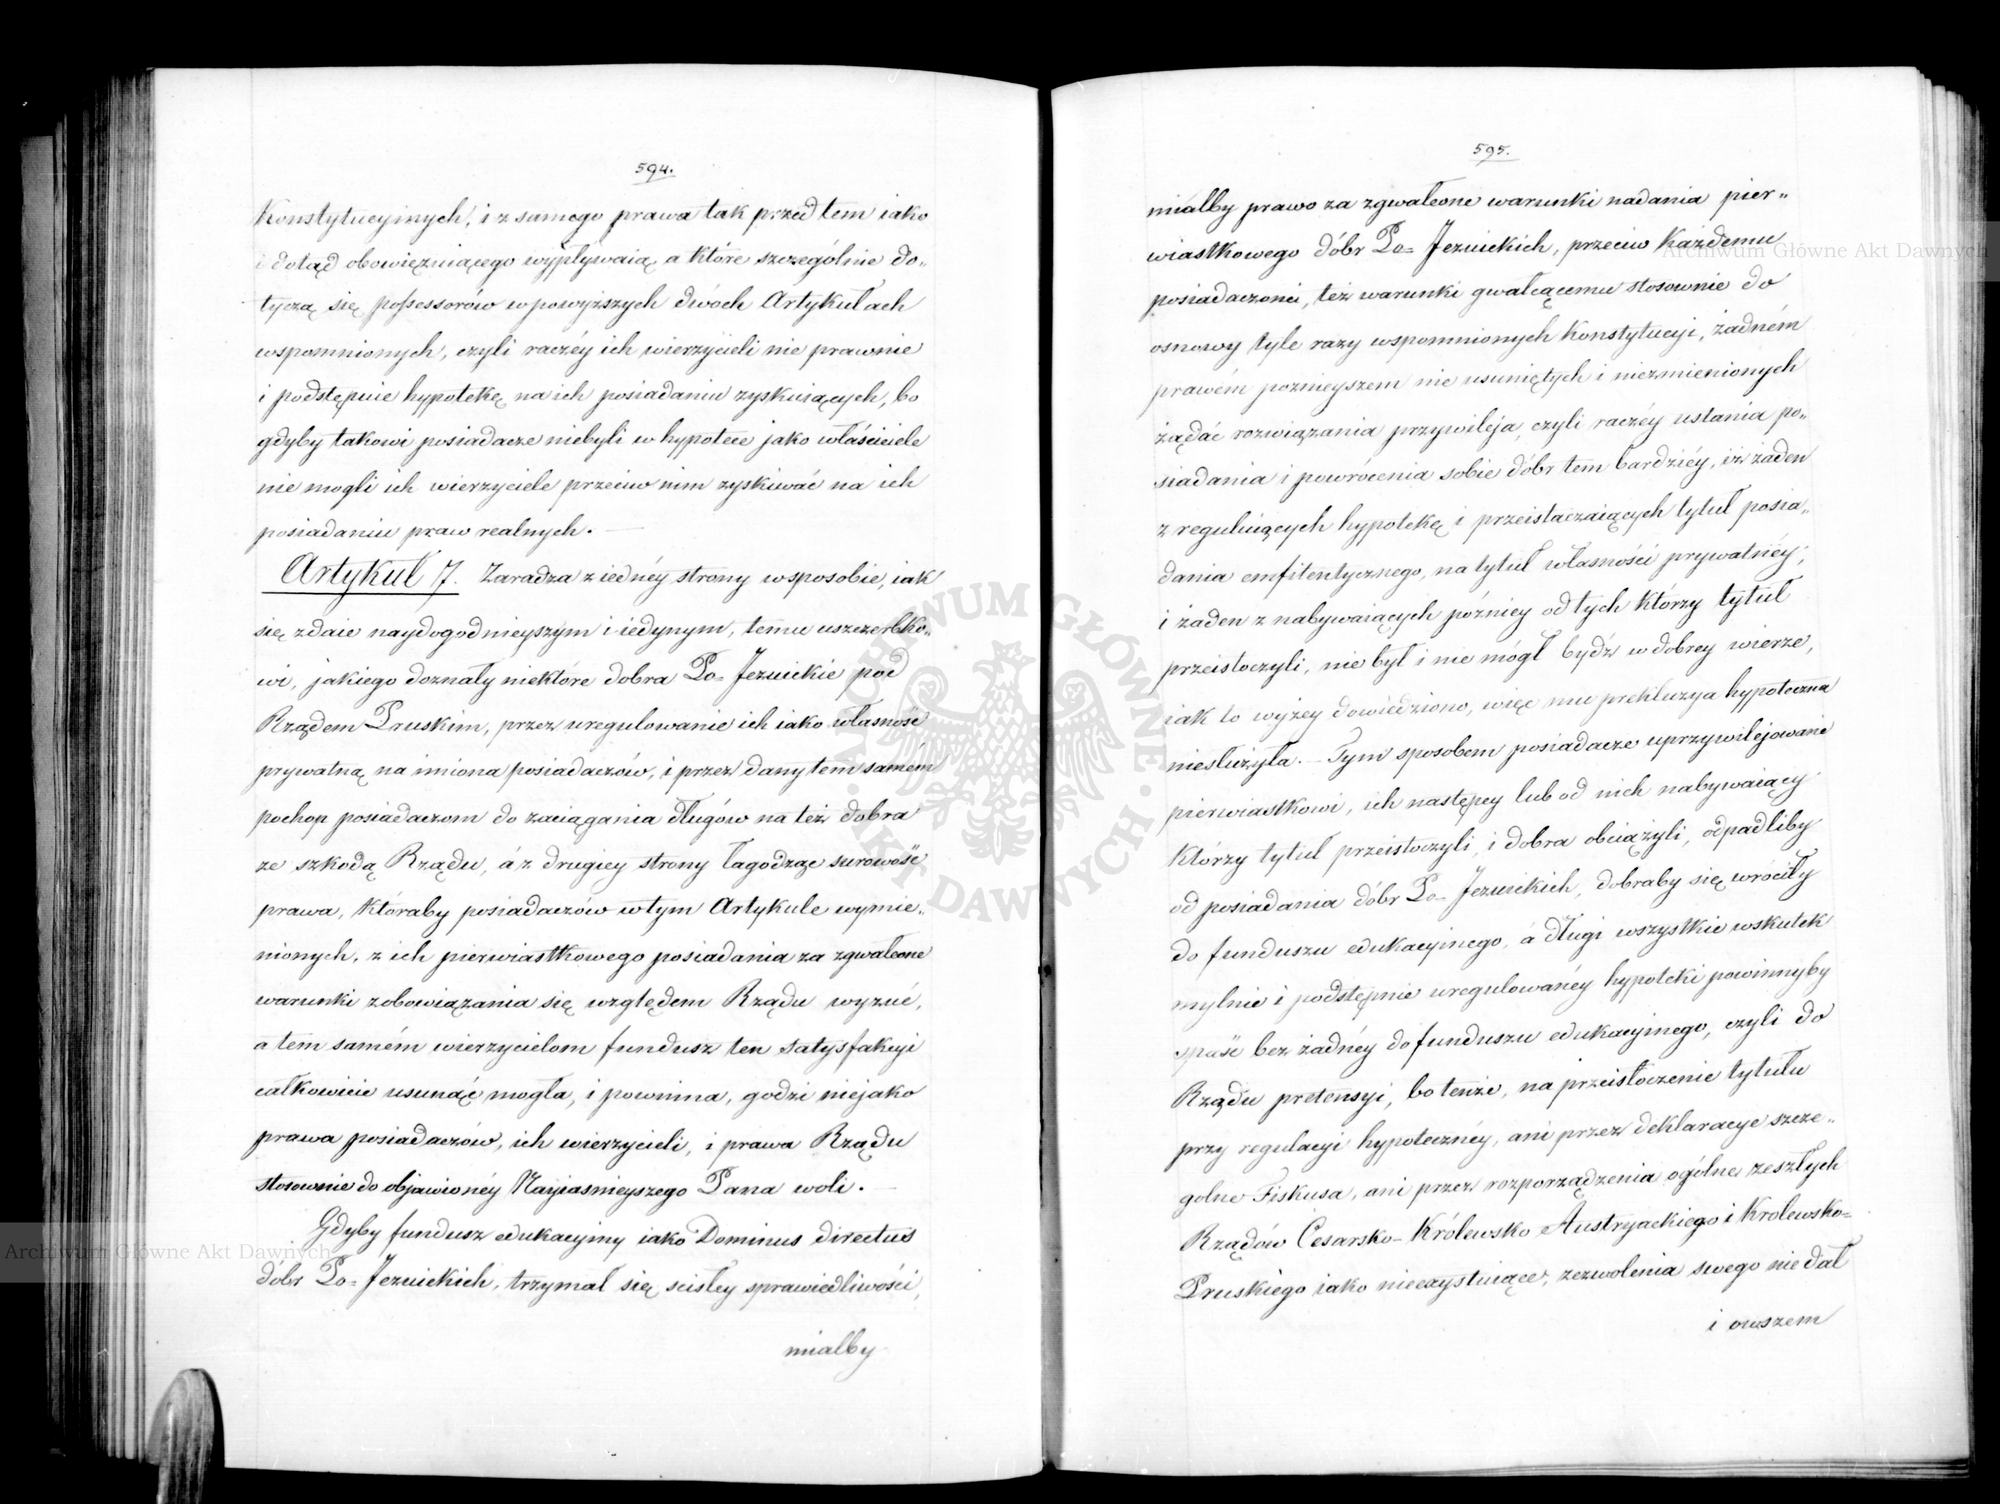 594.
Konstytucyinych, i z samego prawa tak przed tem iako
i dotąd obowięzuiącego wypływaią a które szczególnie do„
tyczą się possessorów w powyższych dwóch Artykułach
wspomnionych, czyli raczéy ich wierzycieli nie prawnie
i podstępnie hypotekę na ich posiadaniu zyskuiących, bo
gdyby takowi posiadacze niebyli w hypotece jako właściciele
nie mogli ich wierzyciele przeciw nim zyskiwać na ich
posiadaniu praw realnych. —
Artykuł 7. Zaradza z iednéy strony w sposobie, iak
się zdaie naydogodnieyszym i iedynym, temu uszczerbko„
wi, jakiego doznały niektóre dobra Po= Jezuickie pod
Rządem Pruskim, przez uregulowanie ich iako własność
prywatną na imiona posiadaczów, i przez dany tem samém
pochop posiadaczom do zaciągania długów na też dobra
ze szkodą Rządu, á z drugiey strony łagodząc surowość
prawa, któraby posiadaczów w tym Artykule wymie„
nionych, z ich pierwiastkowego posiadania za zgwałcone
warunki zobowiązania się względem Rządu wyzuć,
a tem samém wierzycielom fundusz ten satysfakcyi
całkowicie usunąć mogła, i powinna, godzi niejako
prawa posiadaczów, ich wierzycieli, i prawa Rządu
stosownie do objawionéy Nayiasnieyszego Pana woli. —
Gdyby fundusz edukacyiny iako Dominus directus
dóbr Po= Jezuickich, trzymał się scisłey sprawiedliwości,
miałby
595.
miałby prawo za zgwałcone warunki nadania pier„
wiastkowego dóbr Po= Jezuickich, przeciw każdemu
posiadaczowi, też warunki gwałcącemu stosownie do
osnowy tyle razy wspomnionych Konstytucyi, żadném
prawém poznieyszem nie usuniętych i niezmienionych
żądać rozwiązania przywileja, czyli raczéy ustania po„
siadania i powrócenia sobie dóbr tem bardziéy, iż żaden
z reguluiących hypotekę i przeistaczaiących tytuł posia„
dania emfiteutycznego, na tytuł własności prywatnéy;
i żaden z nabywaiących późniey od tych którzy tytuł
przeistoczyli, nie był i nie mógł bydź w dobrey wierze,
iak to wyżey dowiedziono, więc mu prekluzya hypoteczna
niesłużyła. — Tym sposobem posiadacze uprzywilejowani
pierwiastkowi, ich następcy lub od nich nabywaiący
którzy tytuł przeistoczyli, i dobra obciążyli, odpadliby
od posiadania dóbr Po= Jezuickich, dobraby się wróciły
do funduszu edukacyinego, á długi wszystkie wskutek
mylnie i podstępnie uregulowanéy hypoteki powinnyby
spaść bez żadnéy do funduszu edukacyinego, czyli do
Rządu pretensyi, bo tenże, na przeistoczenie tytułu
przy regulacyi hypotecznéy, ani przez deklaracye szcze„
golne Fiskusa, ani przez rozporządzenia ogólne zeszłych
Rządów Cesarsko-Królewsko Austryackiego i Krolewsko=
Pruskiego iako nieexystuiące, zezwolenia swego nie dał
i owszem
ARCHIWUM GŁÓWNE AKT DAWNYCH
Archiwum Główne Akt Dawnych
Archiwum Główne Akt Dawnych